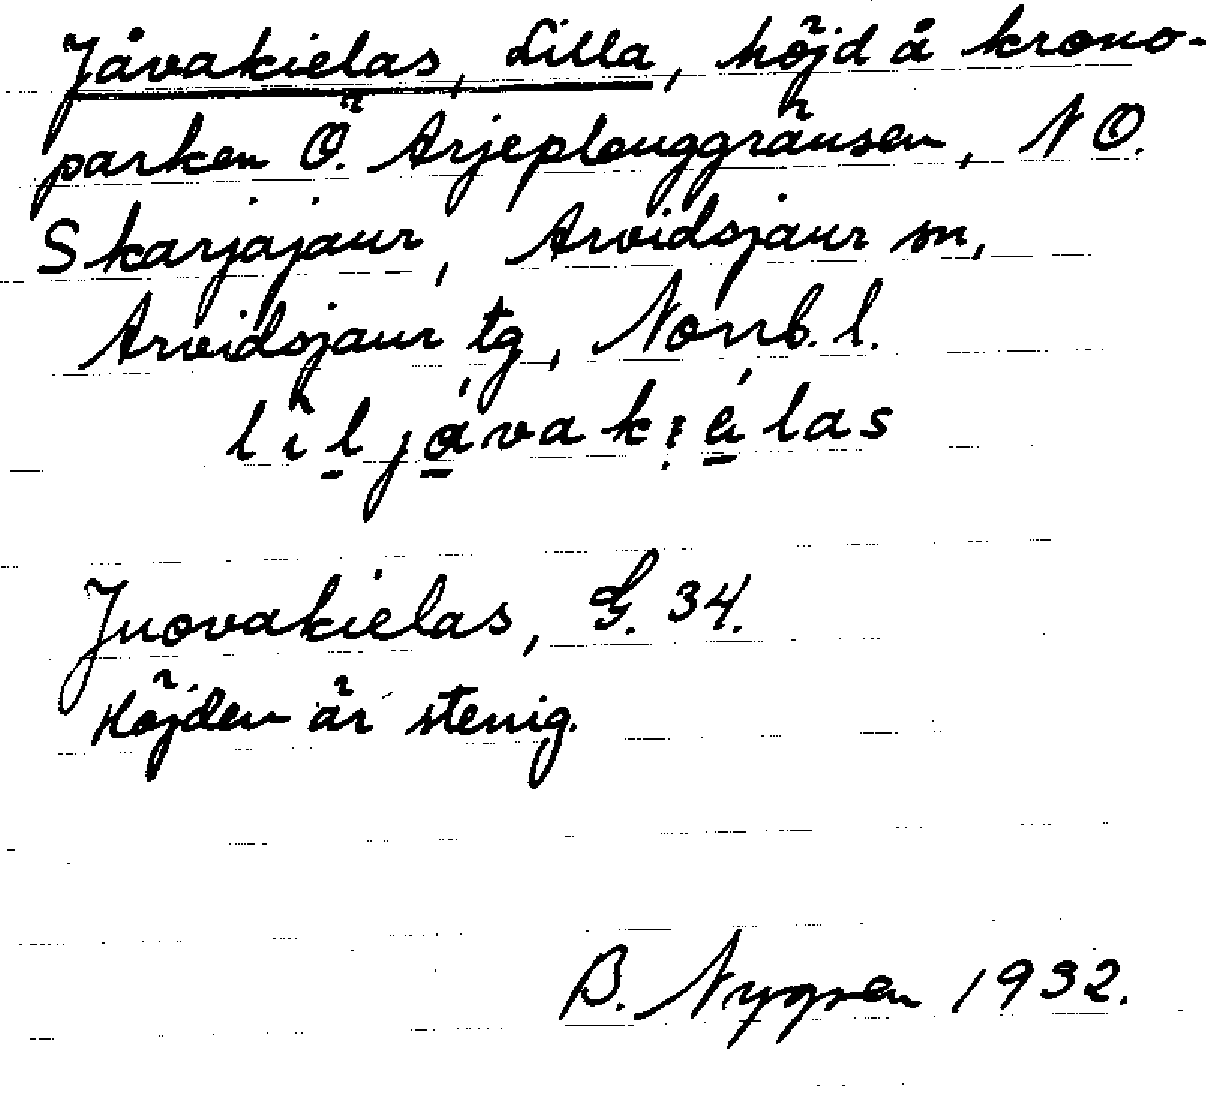 Jåvakielas, Lilla, höjd å krono-
parken Ö. Arjeplouggränsen, NO.
Skarjajaur, Arvidsjaur sn,
Arvidsjaur tg, Norrb. l.
lil jávak:élas
Juovakielas, G. 34.
Höjden är stenig.
B. Nygren 1932.